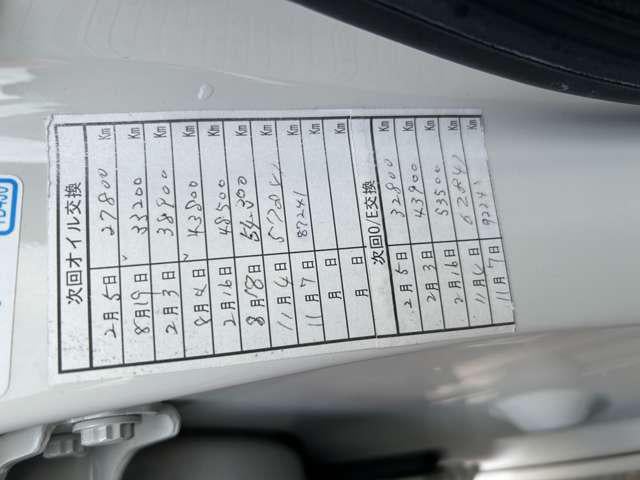 次回オイル交換
2月5日 27800 Km
8月19日 33200 Km
2月3日 38900 Km
8月4日 43800 Km
2月16日 48500 Km
8月18日 54300 Km
11月4日 57204 Km
11月7日 87241 Km
月 日 Km
月 日 Km
次回O/E交換
2月5日 32800 Km
2月3日 43900 Km
2月16日 53500 Km
11月4日 Km
11月7日 92241 Km